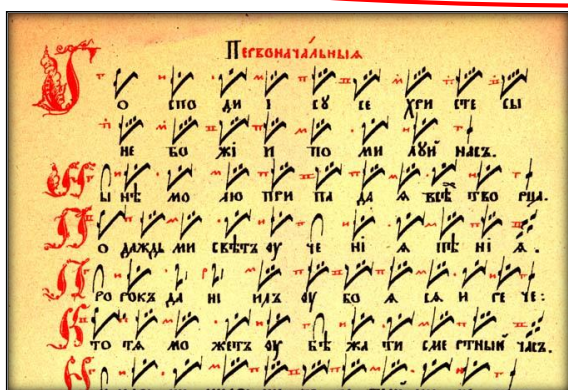 Первонача́льныѧ
Г о спо ди і су се хри сте сы
не бо жі и по ми луй насъ.
Н ы нѣ мо лю при па да ѧ всѣ тво рца.
П о даждь ми свѣтъ ѹ че ні ѧ пѣ ні ѧ.
П ро рокъ да ні илъ ѹ бо ѧ сѧ и ре че:
К то тѧ мо жетъ ѹ бѣ жа ти сме ртный часъ.